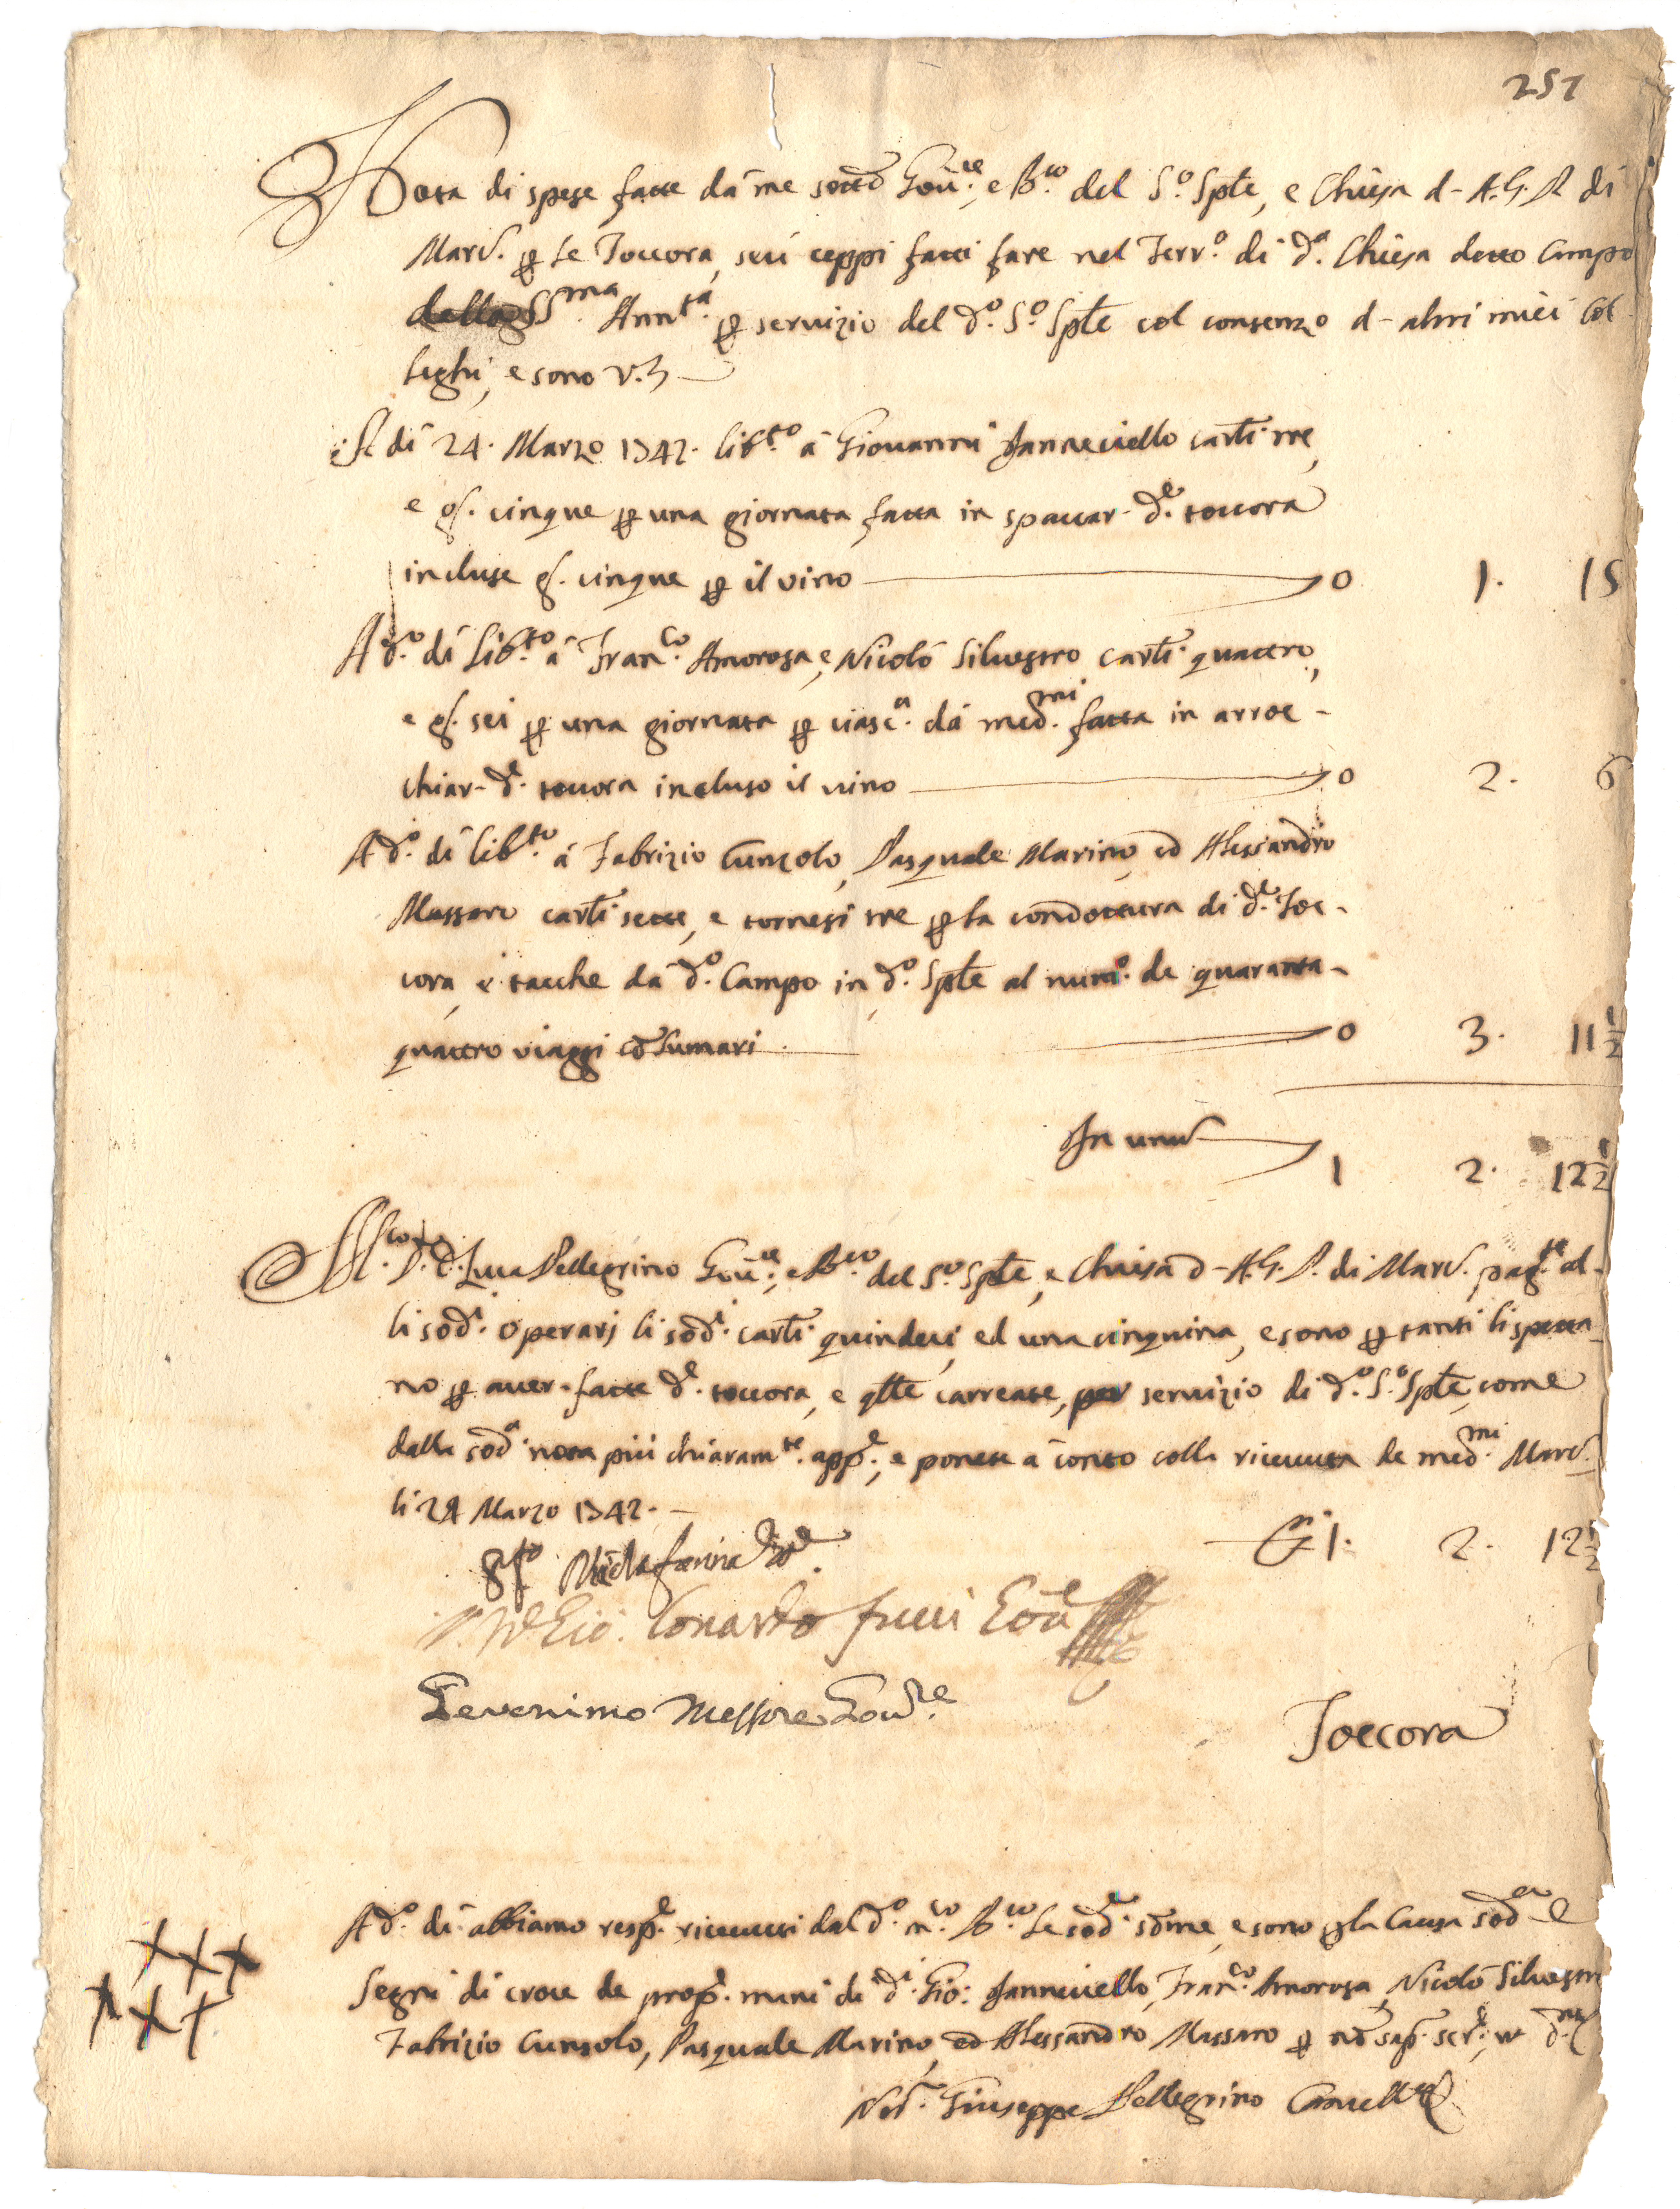 251
Nota di spese fatte dà me sottoō Gou.re, e Pro.co del S.o Sple, e Chiesa d- A.G.P. di
Marc. p le Toccora, seù ceppi fatti fare nel Terr.o di d.a Chiesa detto Campo
della SS.ma Ann.ta p servizio del d.o S.o Sple col consenzo d- altri miei Col-
leghi, e sono v.z
A dì 24. Marzo 1742. lib.to à Giovanni Janneciello carli tre,
e g. cinque p una giornata fatta in spaccar- d.e toccora
incluse g. cinque p il vino 0 1. 15
A d.o dì Lib.to à Fran.co Amorosa, e Nicolò Silvestro carli quattro,
e g. sei p una giornata p ciasc.a dà med.mi fatta in arroc-
chiar- d.e toccora incluso il vino 0 2. 6
A d.o dì lib.to à Fabrizio Cunzolo, Pasquale Marino, ed Alessandro
Massaro carli sette, e tornesi tre p la condottura di d.e Toc-
cora, e tacche dà d.o Campo in d.o Sple al num.o de quaranta-
quattro viaggi cō Sumari 0 3. 11½
In unū 1 2. 12½
D. Luca Pellegrino Gou.re, e Pro.co del S.o Sple, e Chiesa d- A.G.P. di Marc. pag.te al-
li sod.i operarj li sod.i carli quindeci, ed una cinquina, e sono p tanti li spetta-
no p aver- fatte d.e toccora, e qlle carreate, per servizio di d.o S.o Sple, come
dalla sod.a nota più chiaram.te app.e, e ponete à conto colla ricevuta de med.mi Marc.
li 24 Marzo 1742.
1. 2. 12½
Gio. Conardo
Messore Gou.re
Toccora
A d.o dì abbiamo resp.e ricevuti dal d.o m.co Pro.co le sod.e sōme, e sono p la causa sod.a e
Segni di croce de prop.e mani di d.i Gio: Janneciello, Fran.co Amorosa, Nicolò Silvestro
Fabrizio Cunzolo, Pasquale Marino, ed Alessandro Massaro p nō sap. scr.e, ut d.nt
Not.r Giuseppe Pellegrino